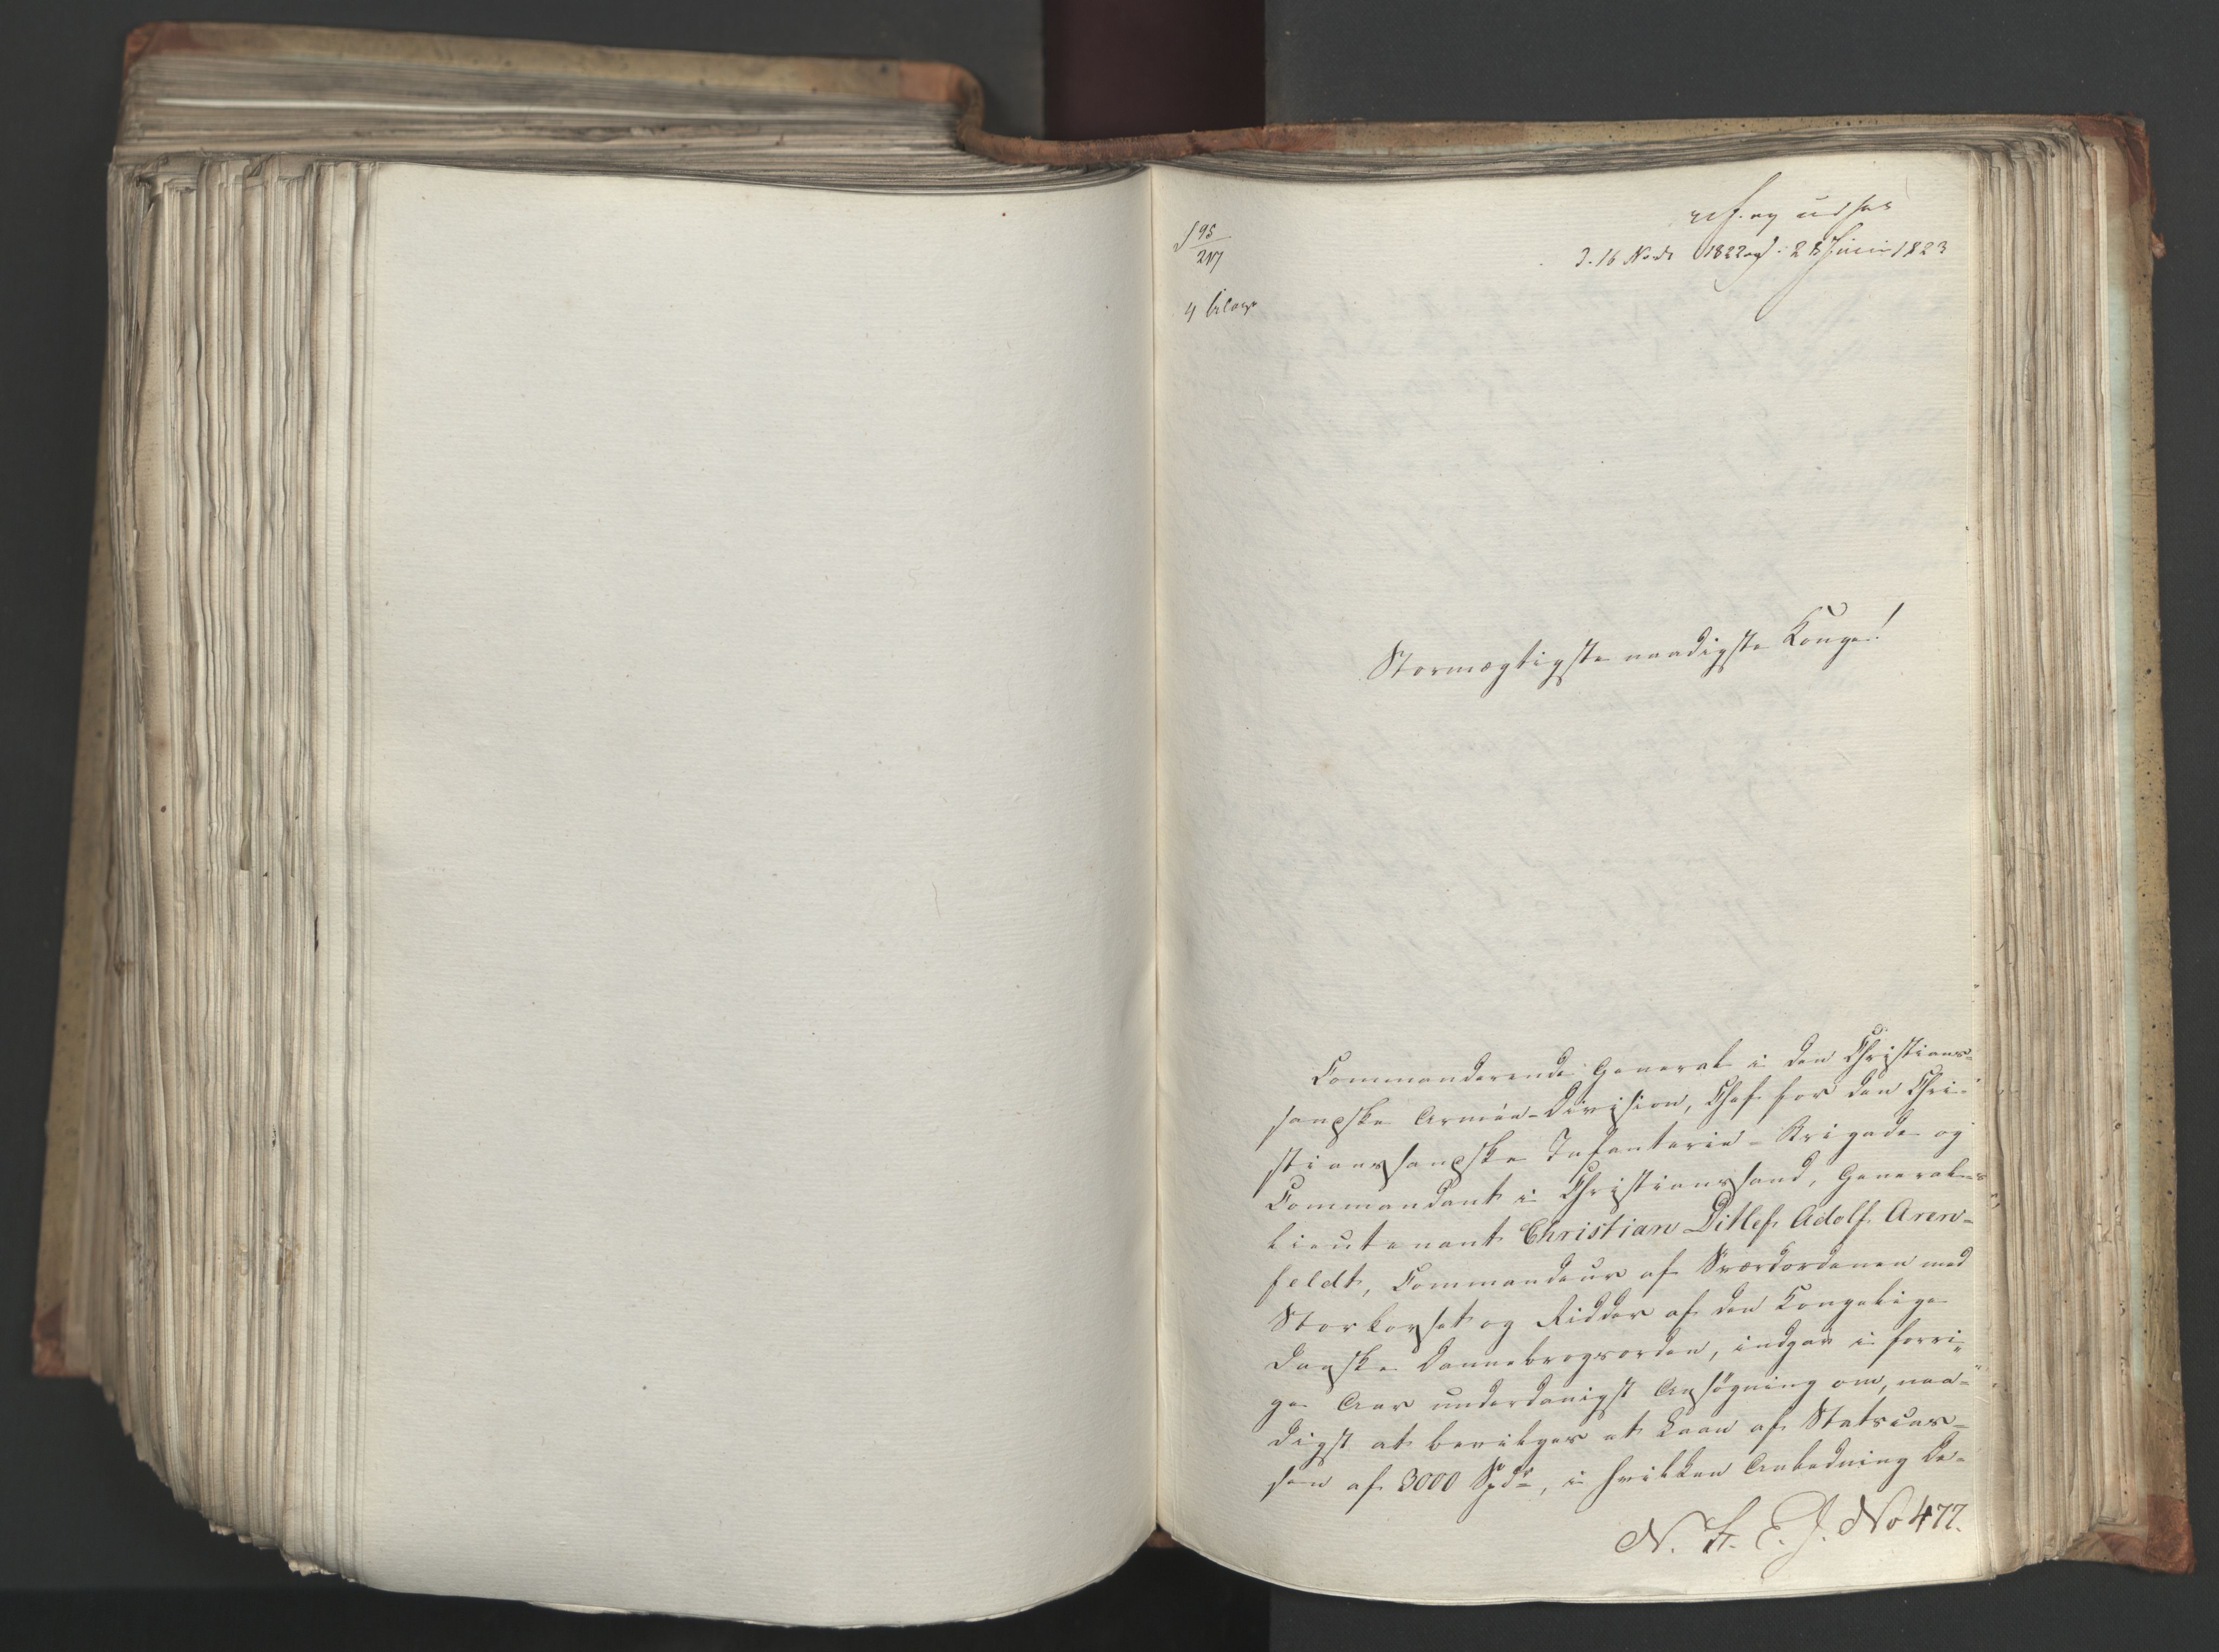 95
217
4 bilag
ref. og udsat
d. 16 Novbr 1822 og d: 28 Junii 1823
Stormægtigste naadigste Konge!
Commanderende General i den Christians-
sandske Armée-Division, Chef for den Chri-
stianssandske Infanterie-Brigade og
Commandant i Christianssand, General-
lieutenant Christian Ditlef Adolf Aren-
feldt, Commandeur af Sværdordenen med
Storkorset og Ridder af den Kongelige
danske Dannebrogsorden, indgav i forri-
ge Aar underdanigst Ansøgning om, naa-
digst at bevilges et Laan af Statscas-
sen af 3000 Spdr, i hvilken Anledning De-
No 477.